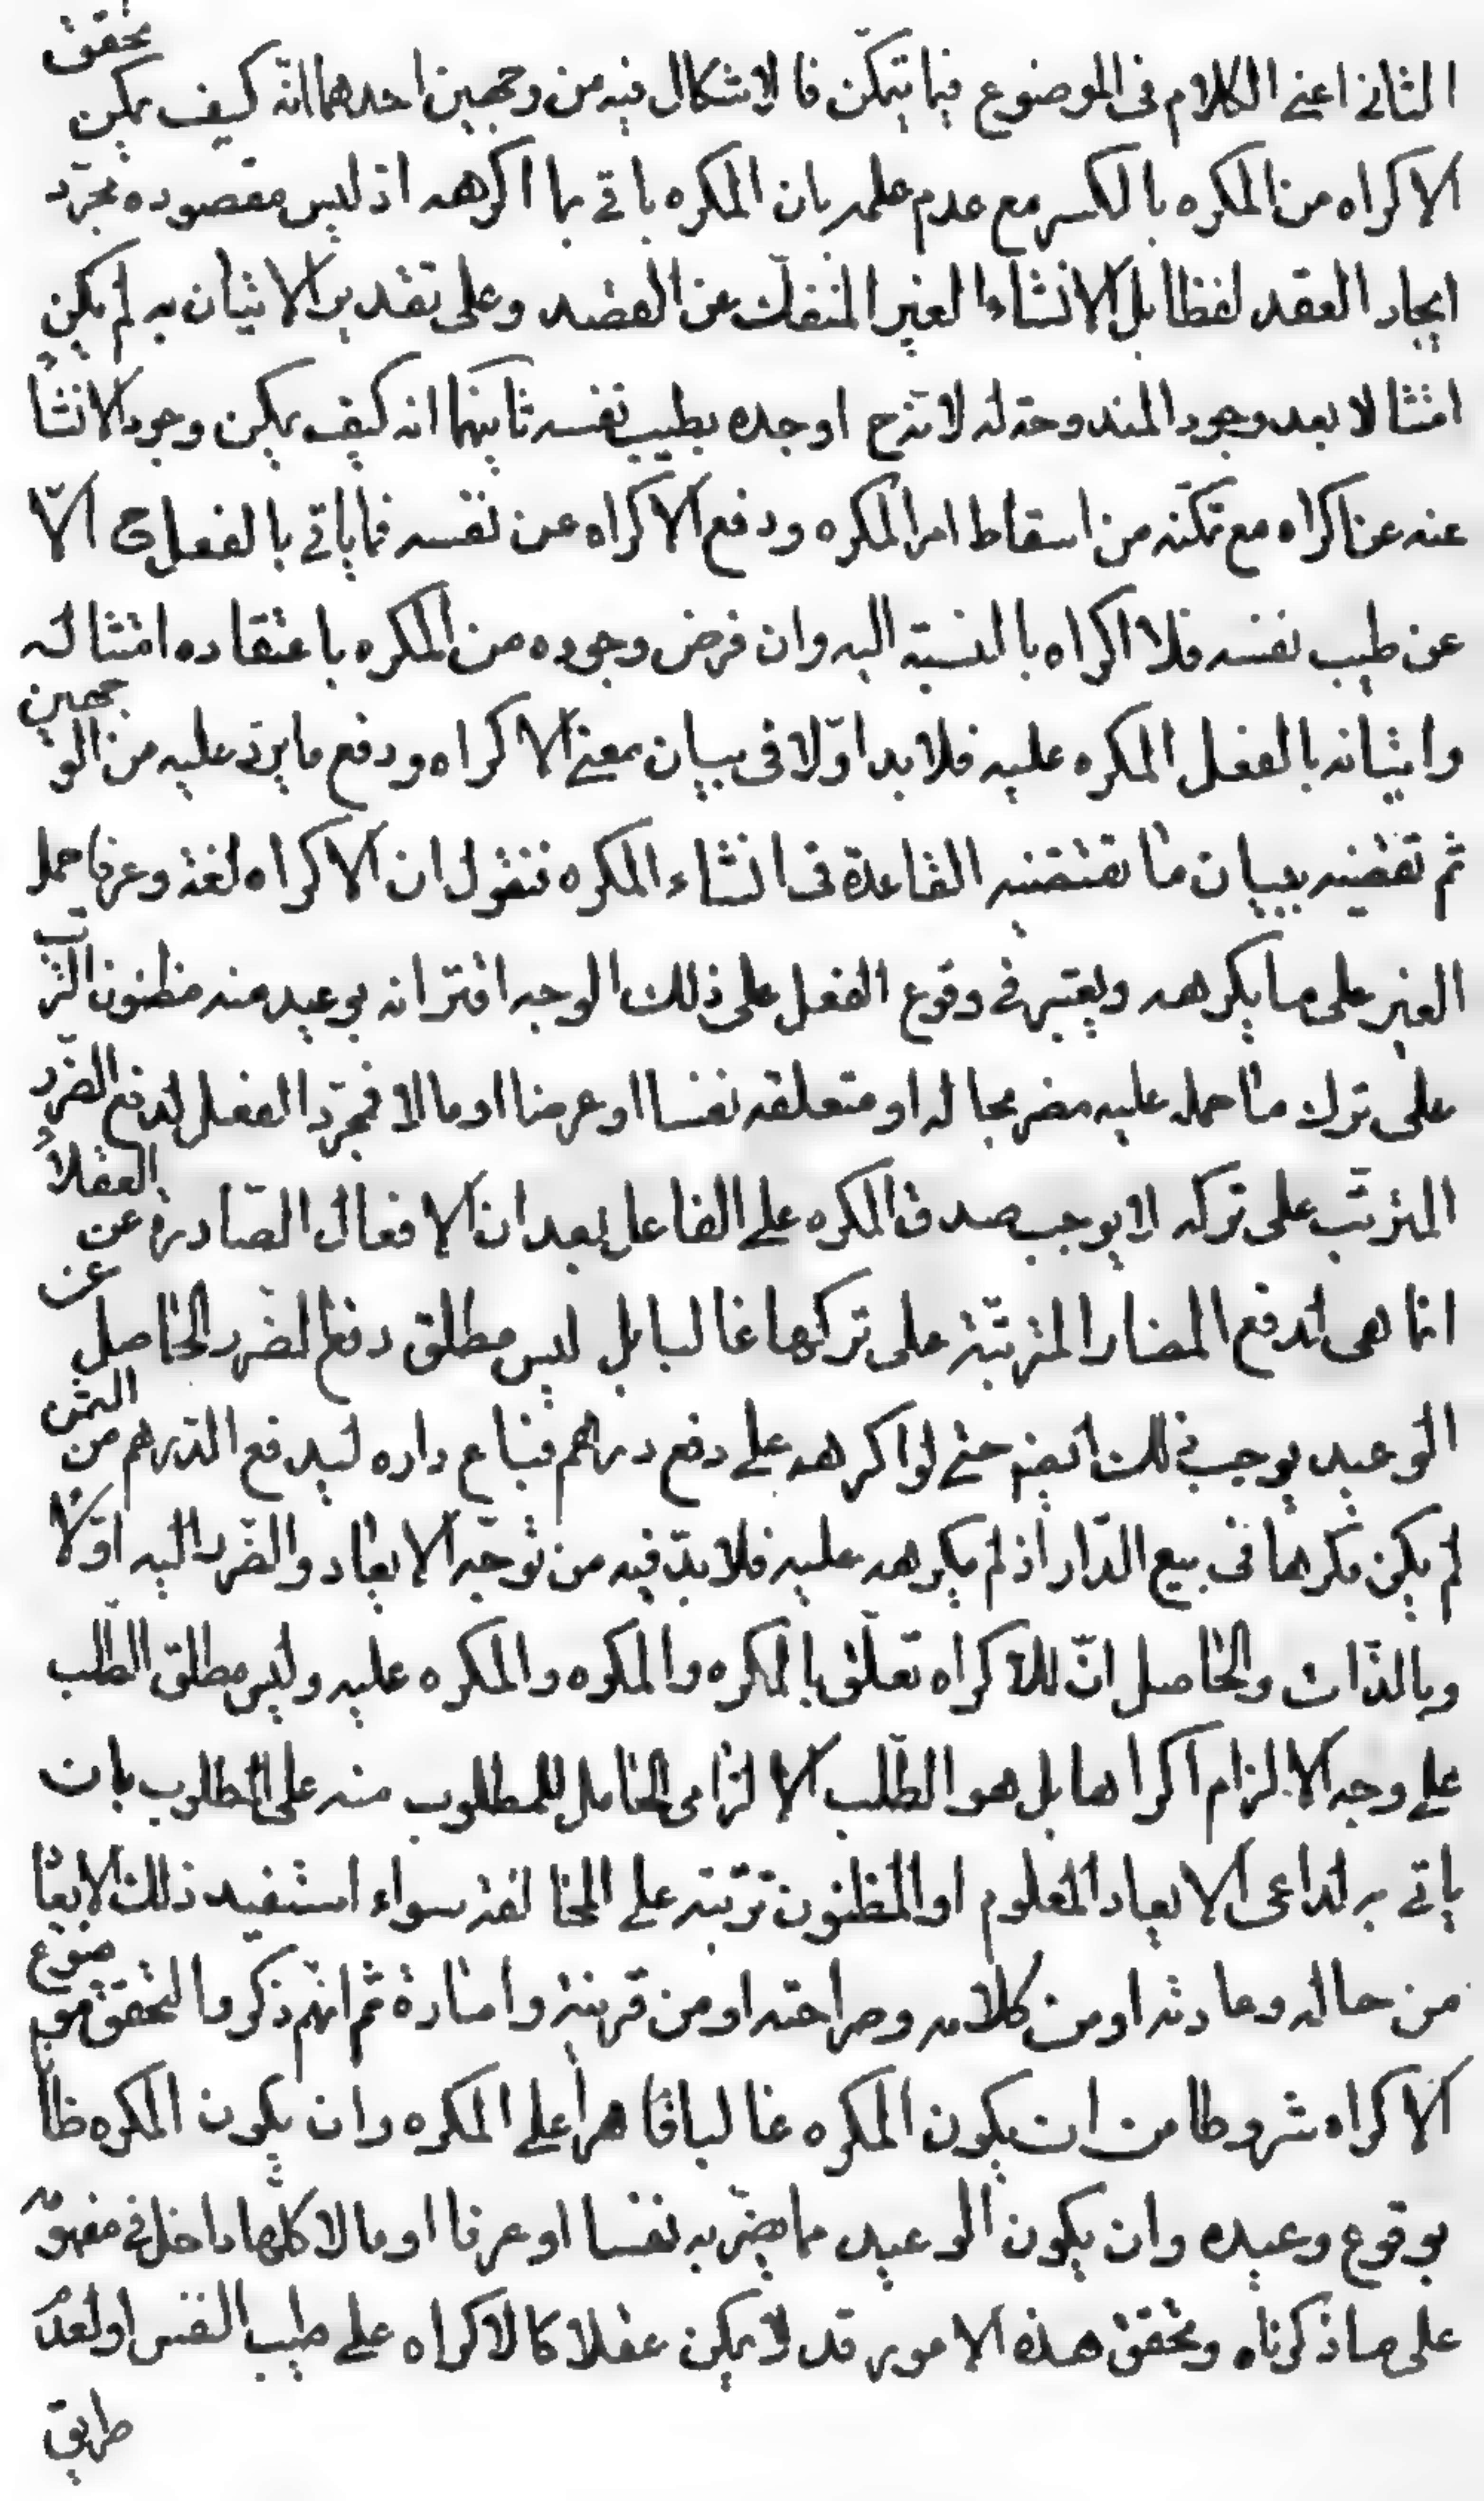 الثانى اعنى الكلام فى الموضوع فيما يتمكن فالاشكال فيه من وجهين احدهما انّه كيف يمكن تحقق
الاكراه من المكره بالكسر مع عدم علمه بان المكره ياتى بما اكرهه اذ ليس مقصوده مجرّد
ايجاد العقد لفظا بل الانشاء الغير المنفك عن القصد وعلى تقدير الاتيان به لم يكن
امتثالا بعد وجود المندوحة له لانه ح اوجده بطيب نفسه ثانيهما انه كيف يمكن وجود الانشاء
عنه عن اكراه مع تمكنه من اسقاط امر المكره ودفع الاكراه عن نفسه فما ياتى بالفعل ح الّا
عن طيب نفسه فلا اكراه بالنسبة اليه وان فرض وجوده من المكره باعتقاده امتثاله
واتيانه بالفعل المكره عليه فلا بد اوّلا فى بيان معنى الاكراه ودفع ما يرد عليه من الوجهين
ثم تقضيه ببيان ما تقتضيه القاعدة فى انشاء المكره فنقول ان الاكراه لغة وعرفا حمل
الغير على ما يكرهه ويعتبر فى وقوع الفعل على ذلك الوجه اقترانه بوعيد منه مظنون الترتب
على ترك ما حمله عليه مضر بحاله او متعلقه نفسا او عرضا او مالا فمجرّد الفعل لدفع الضرر
المترتّب على تركه لا يوجب صدق المكره على الفاعل بعد ان الافعال الصّادرة عن العقلاء
انما هى لدفع المضار المترتّبة على تركها غالبا بل ليس مطلق دفع الضرر الحاصل عن
الوعيد يوجب ذلك ايضا حتى لو اكرهه على دفع دراهم فباع داره ليدفع الدّرهم من الثمن
لم يكن مكرها فى بيع الدّار اذ لم يكرهه عليه فلا بدّ فيه من توجّه الايعاد والضّرر اليه اوّلا
وبالذّات والحاصل انّ للاكراه تعلّق بالمكره والمكره والمكره عليه وليس مطلق الطّلب
على وجه الالزام اكراها بل هو الطّلب الالزامى الحامل للمطلوب منه على المطلوب بان
ياتى به لداعى الايعاد المعلوم او المظنون ترتبه على المخالفة سواء استفيد ذلك الايعا
من حاله وعادته او من كلامه وصراحته او من قرينة وامارة ثم انهم ذكروا لتحقق موضوع
الاكراه شروطا من ان يكون المكره غالبا قاهرا على المكره وان يكون المكره ظانا
بوقوع وعيده وان يكون الوعيد مما يضر به نفسا او عرضا او مالا كلها داخل فى مفهومه
على ما ذكرناه وتحقق هذه الامور قد لا يمكن عقلا كالاكراه على طيب النفس او لعدم
طريق